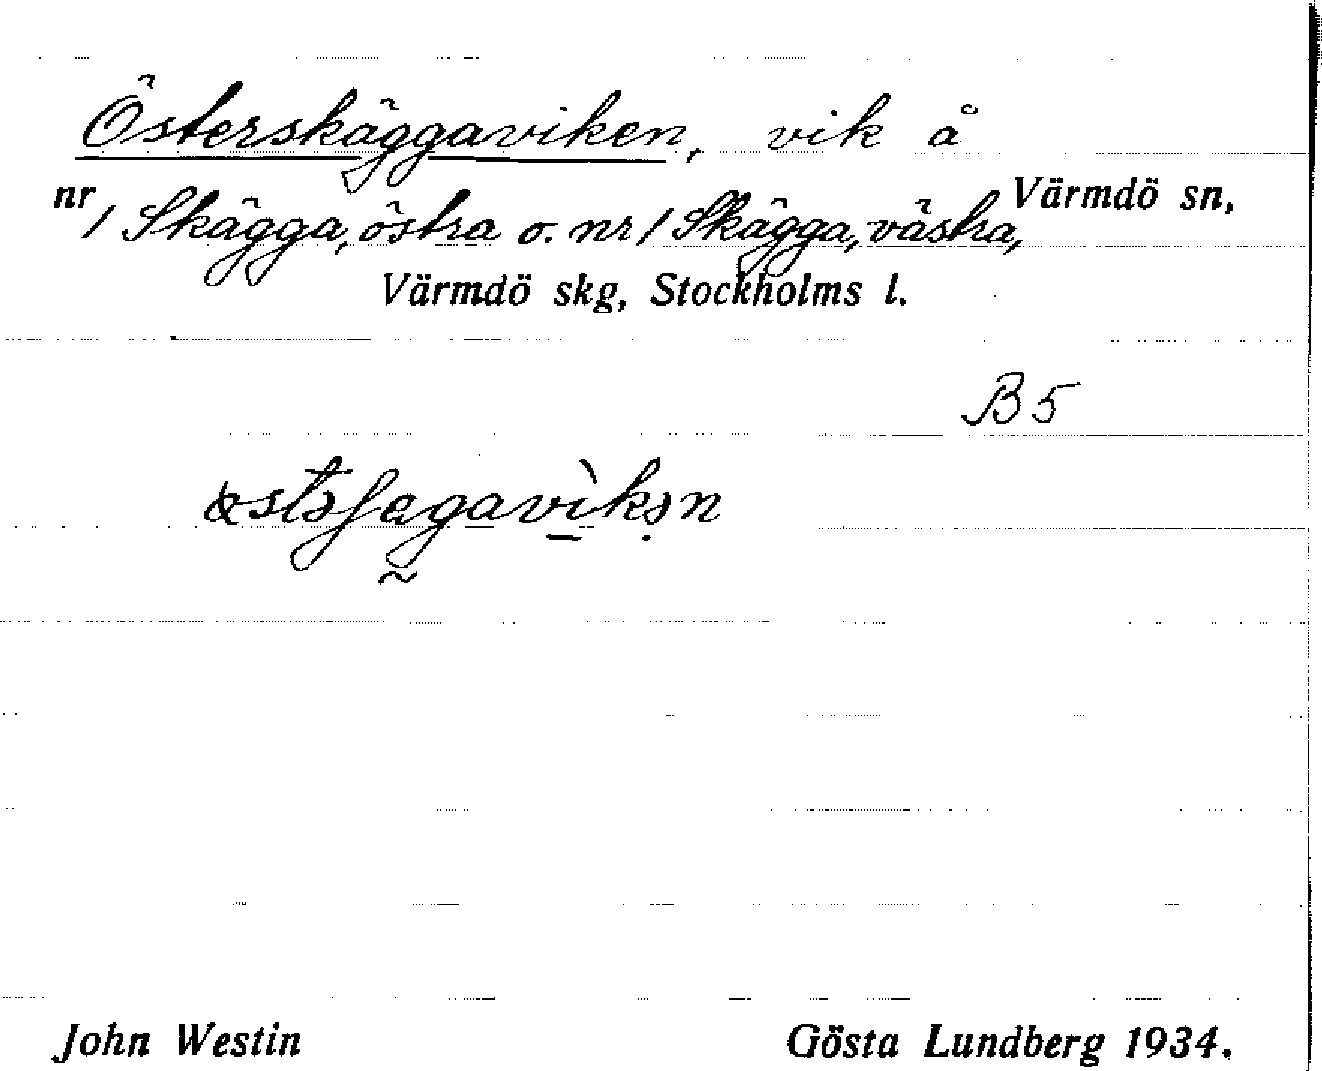 Österskäggaviken, vik å
nr 1 Skägga, östra o. nr 1 Skägga, västra, Värmdö sn,
Värmdö skg, Stockholms l.
B 5
John Westin Gösta Lundberg 1934.